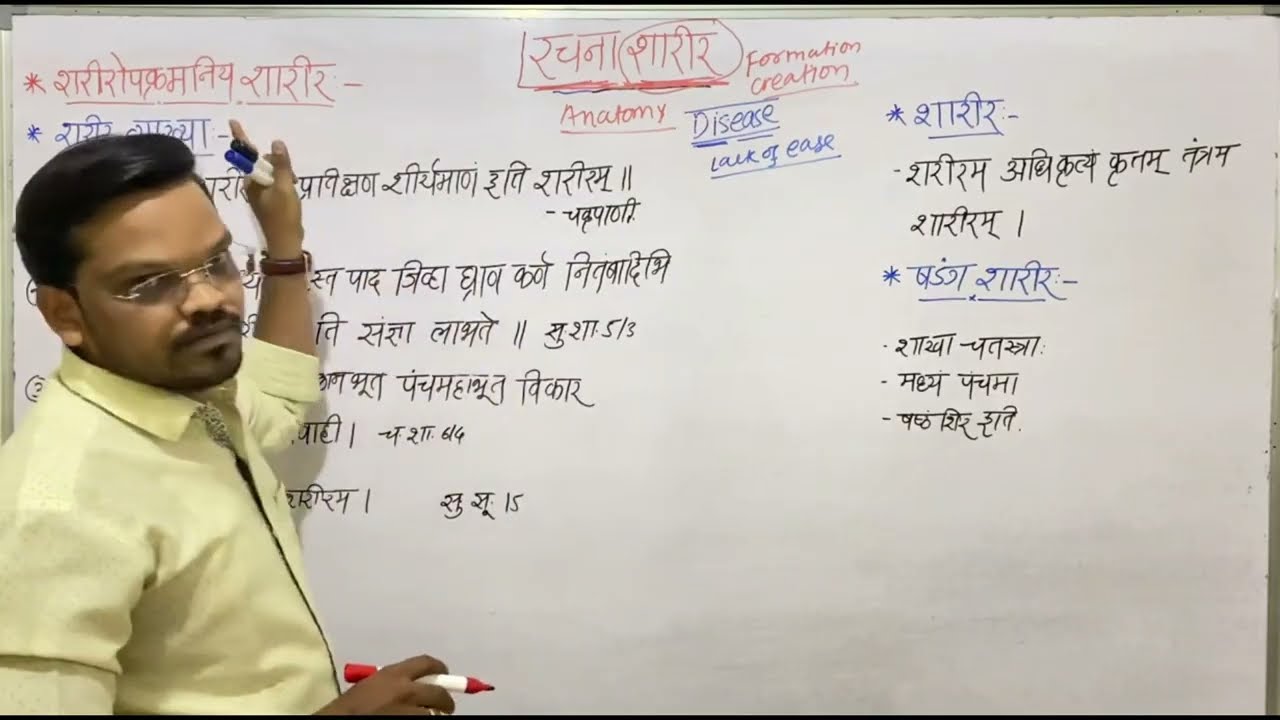 रचना शारीर
Formation
creation
Anatomy
Disease
Lack of ease
* शरीरोपक्रमनिय शारीरः-
* शरीर व्याख्याः-
प्रतिक्षण शीर्यमाणं इति शरीरम् ॥
- चक्रपाणी
पाद जिव्हा घ्राण कर्ण नितंबादिभि
संज्ञा लाभते ॥ सु.शा.5/3
भूत पंचमहाभूत विकार
वाही । च.शा. 6/4
शरीरम । सु सू. 15
* शारीरः-
- शरीरम अधिकृत्यं कृतम् तंत्रम
शारीरम् ।
* षडंग शारीरः-
- शाखा चतस्त्राः
- मध्यं पंचमा
- षष्ठं शिर इति.